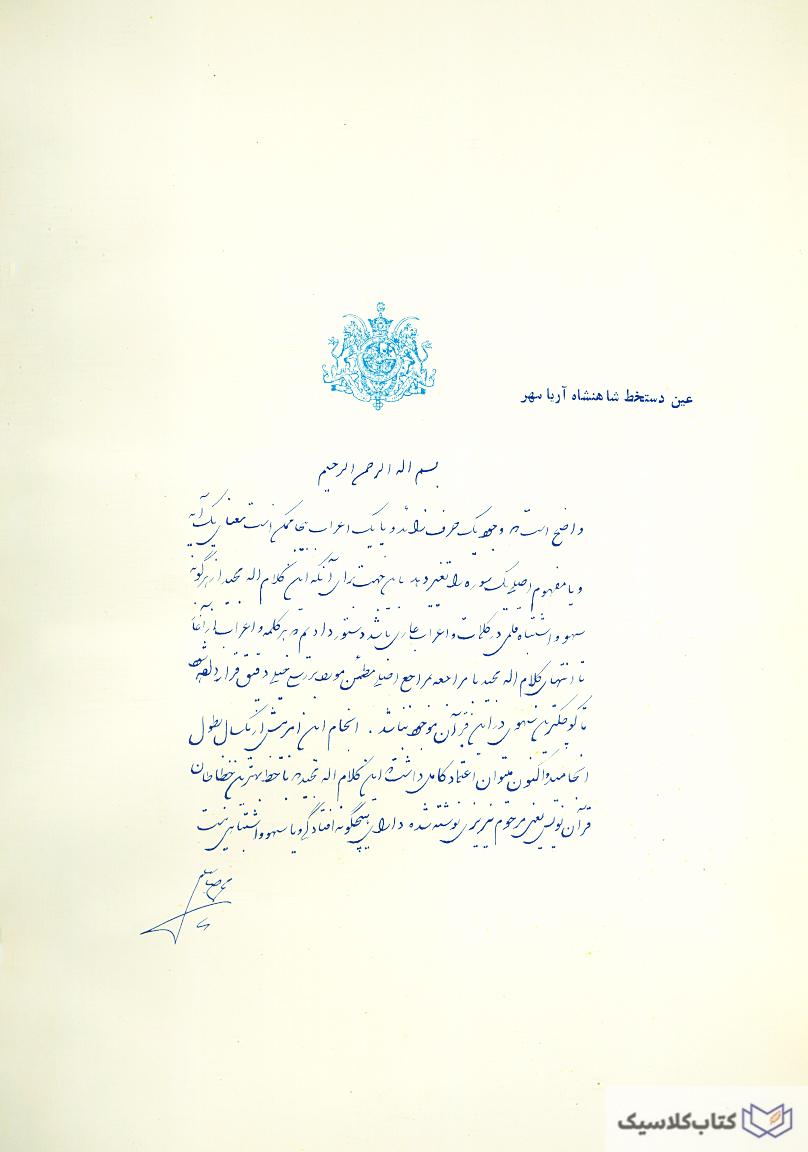 عین دستخط شاهنشاه آریا مهر
بسم اله الرحمن الرحیم
واضح است که وجود یک حرف زائد و یا یک اعراب بیجا ممکن است معنای یک آیه
و یا مفهوم اصلی یک سوره را تغییر دهد باین جهت برای آنکه این کلام اله مجید از هر گونه
سهو و اشتباه قلمی در کلمات و اعراب عاری باشد دستور دادیم که هر کلمه و اعراب از آغاز
تا انتهای کلام اله مجید با مراجعه بمراجع اصلی مطمئن مورد بررسی خیلی دقیق قرار داده شود
تا کوچکترین سهوی در این قرآن موجود نباشد . انجام این امر بیش از یکسال بطول
انجامید و اکنون میتوان اعتماد کامل داشت که این کلام اله مجید که با خط بهترین خطاطان
قرآن نویس یعنی مرحوم نیریزی نوشته شده دارای هیچگونه افتادگی و یا سهو و اشتباهی نیست
کتاب کلاسیک